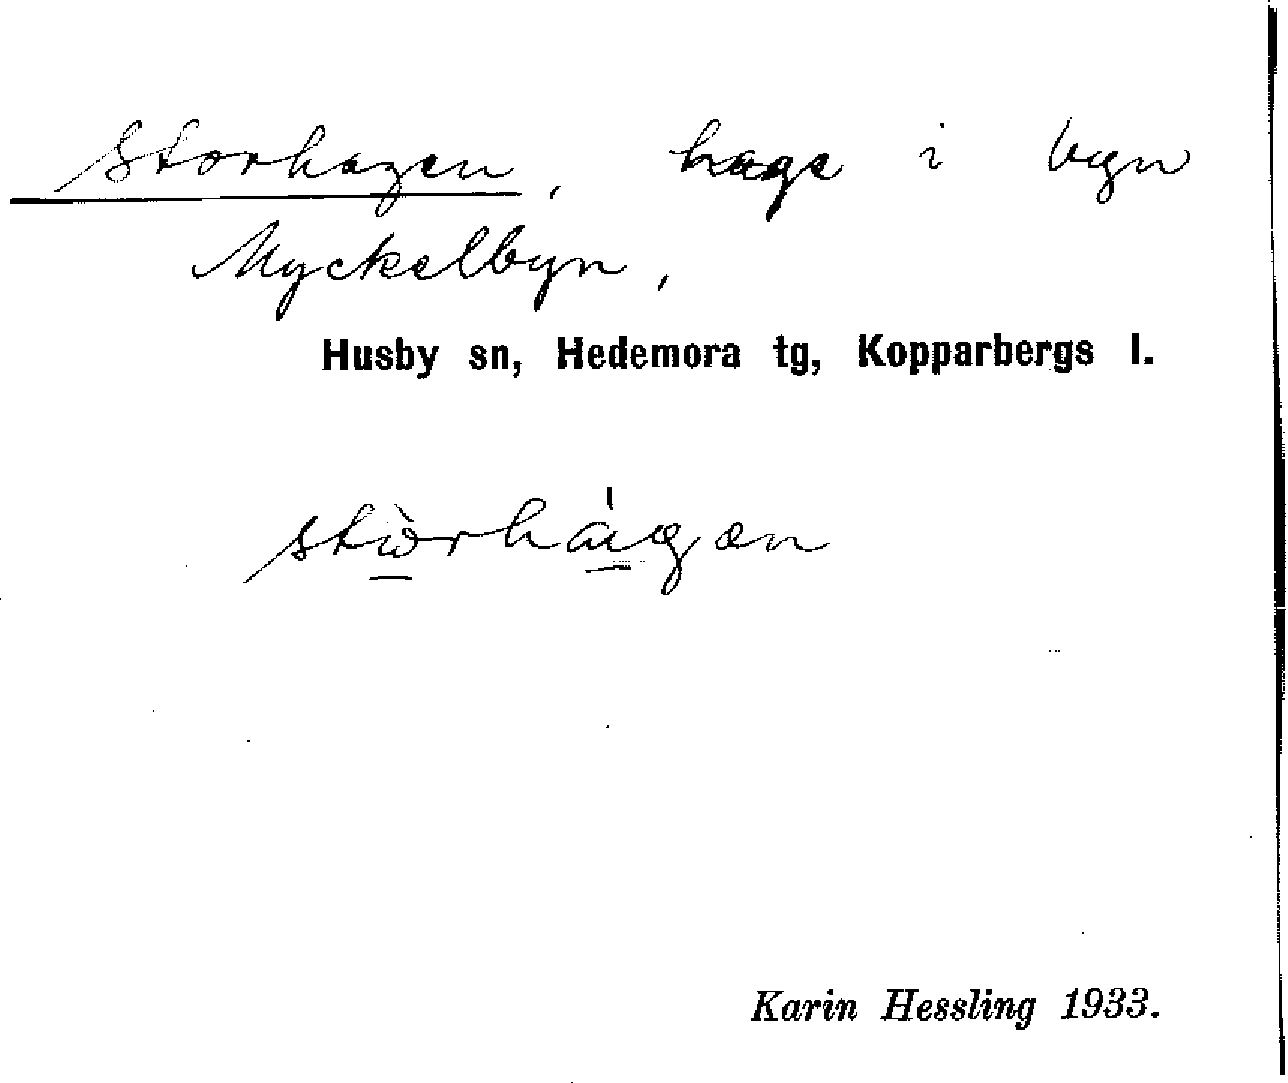 Storhagen, hage i byn
Myckelbyn,
Husby sn, Hedemora tg, Kopparbergs l.
Karin Hessling 1933.